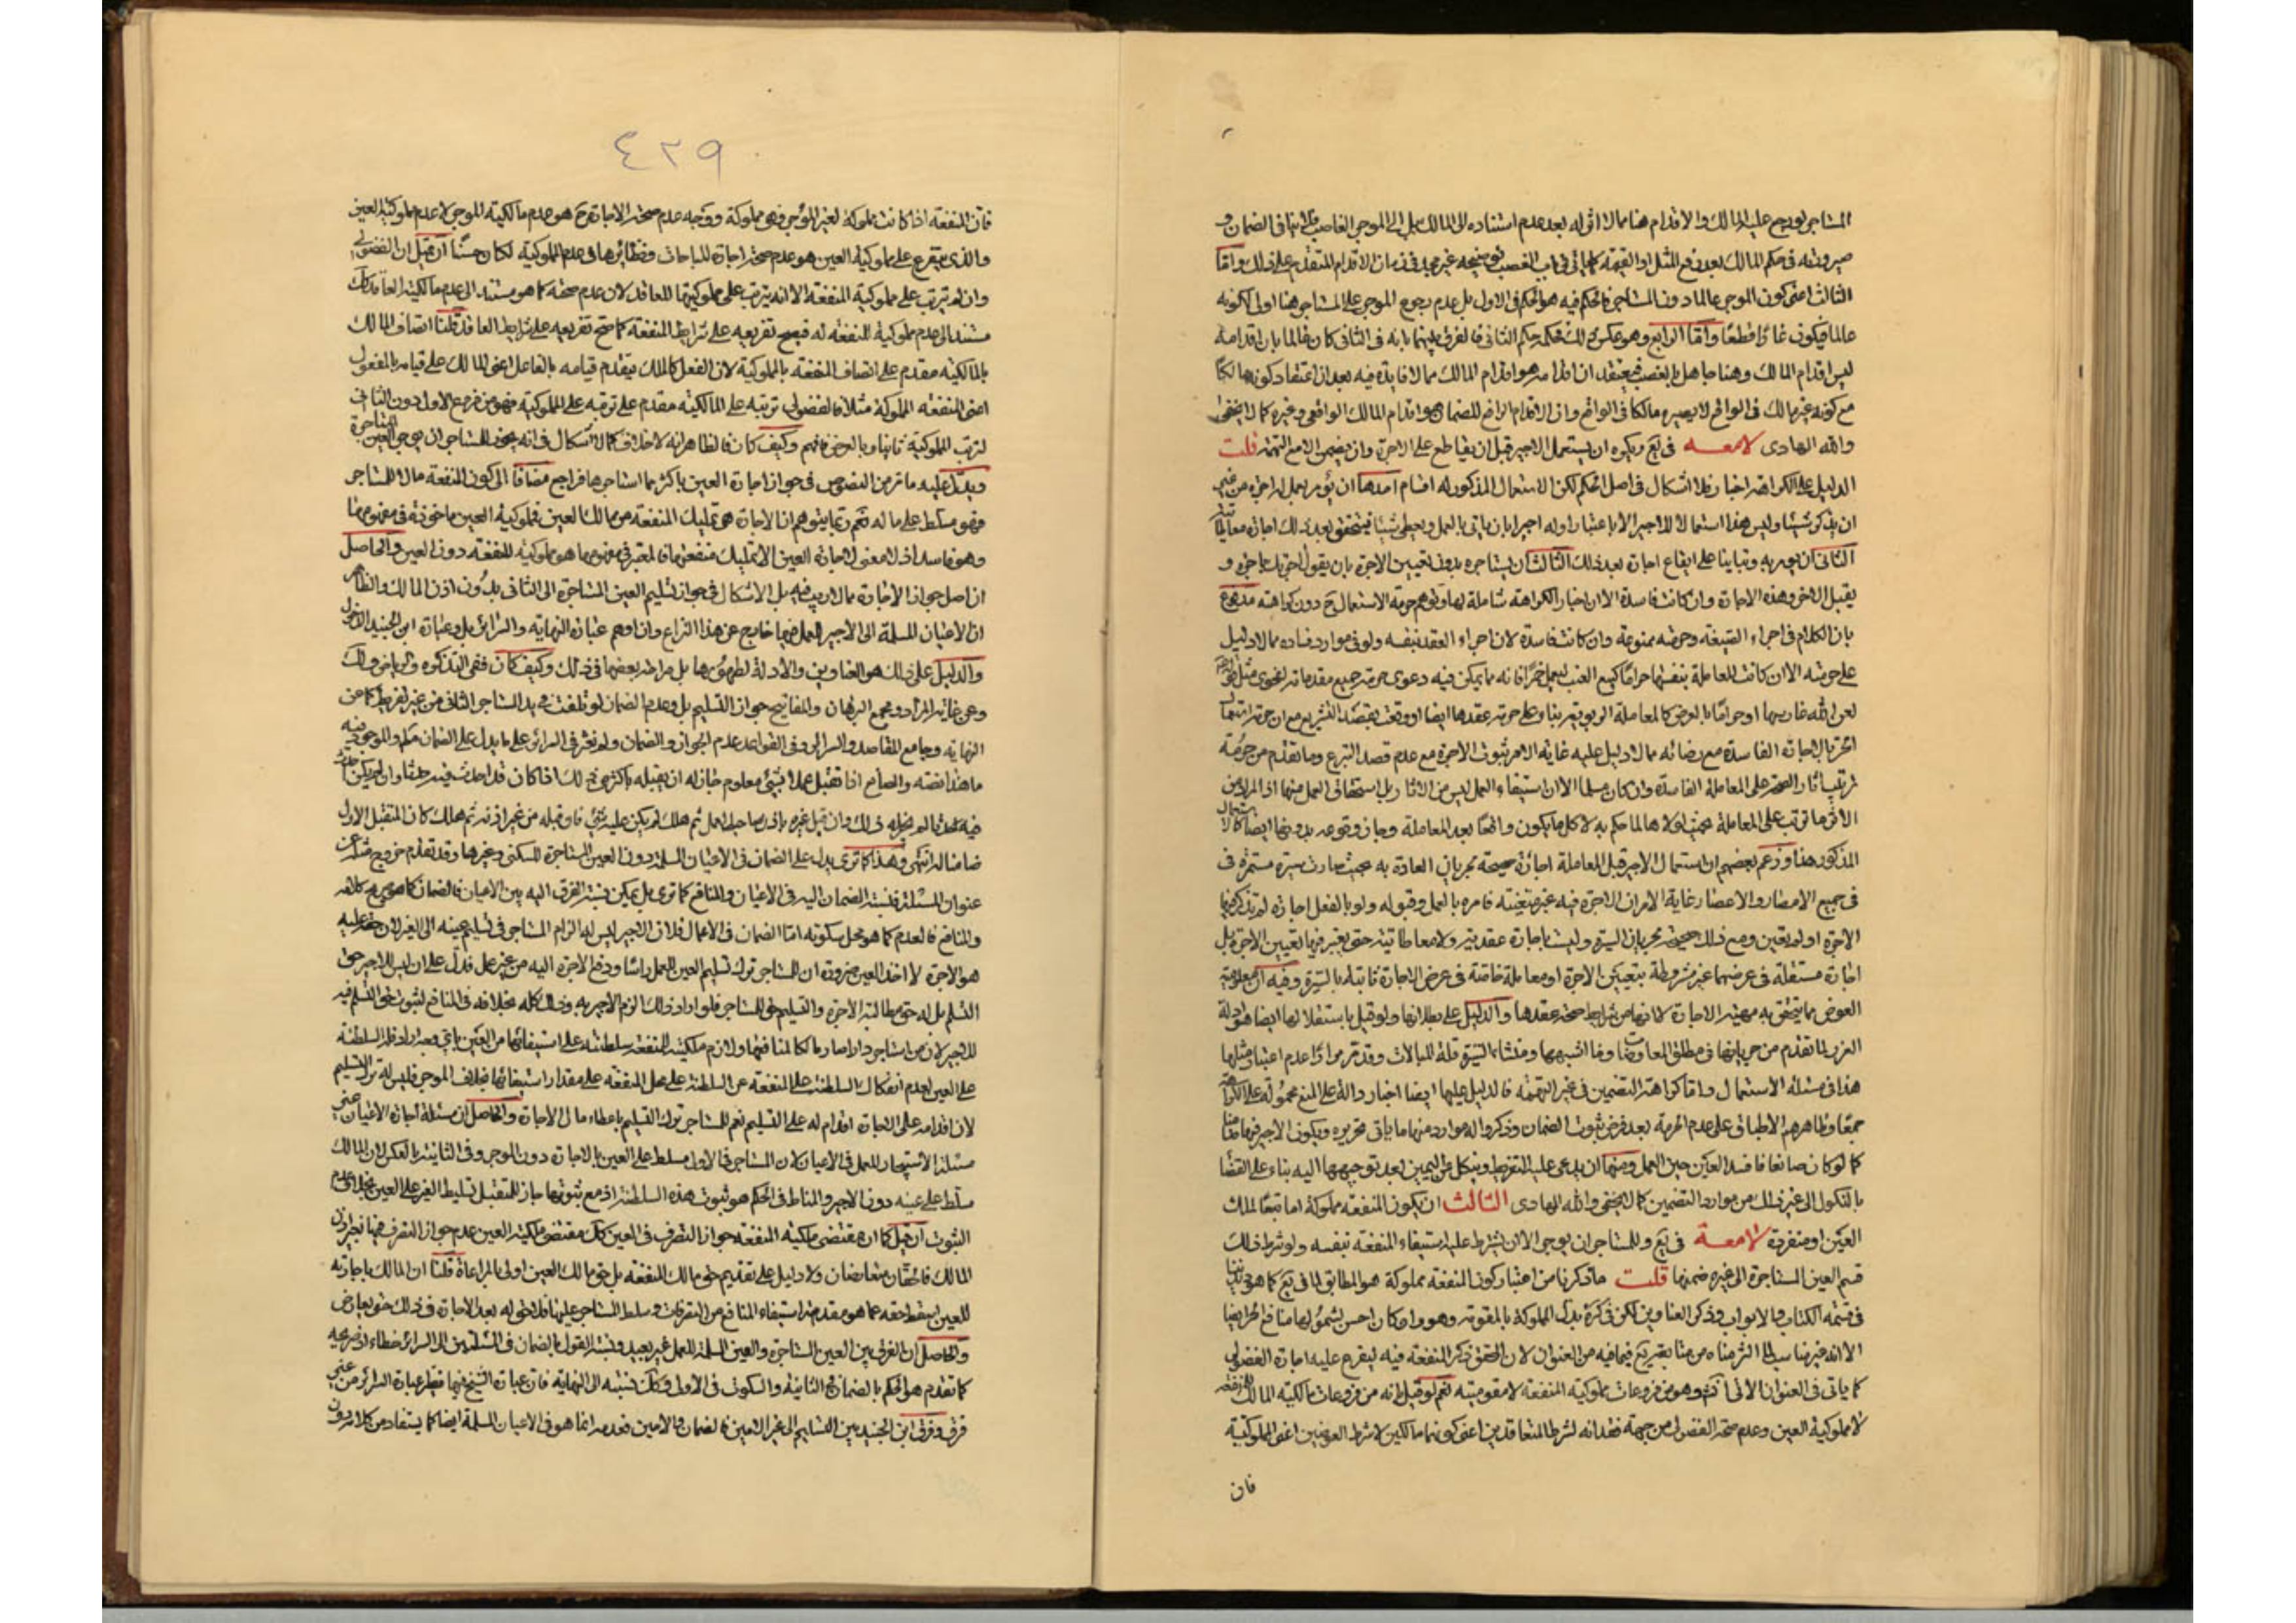 المستاجر لو رجع عليه المالك والاقدام هنا مما لا اثر له بعد عدم استناده الى المالك بل الى الموجر الغاصب
صيرورته في حكم المالك بعد دفع المثل او القيمة كما ياتي في باب الغصب توضيحه غير مجد في زمان الاقدام المتقدم على ذلك واما
الثالث اعنى كون الموجر عالما دون المستاجر فالحكم فيه هو الحكم في الاول بل عدم رجوع الموجر على المستاجر هنا اولى لكونه
عالما فيكون غارا قطعا واما الرابع وهو عكس ذلك فحكمه حكم الثاني فالفرق بينهما بانه في الثاني كان ظالما بان اقدامه
ليس اقدام المالك وهنا جاهل بالغصب فيعتقد ان اقدامه هو اقدام المالك مما لا فايدة فيه بعد ان اعتقاد كونه مالكا
مع كونه غير مالك في الواقع لا يصيره مالكا في الواقع وان الاقدام الرافع للضمان هو اقدام المالك الواقعى وغيره كما لا يخفى
والله الهادى لامعه في يع ويكره ان يستعمل الاجير قبل ان يقاطع على الاجرة وان يضمن الا مع التهمة قلت
الدليل على الكراهة اخبار فلا اشكال في اصل الحكم لكن الاستعمال المذكور له اقسام احدها ان يؤمر بعمل له اجرة من غير
ان يذكر شيئا وليس هذا استعمالا للاجير الا باعتبار اوله اجيرا بان ياتى بالعمل ويعطى شيئا فيتحقق بعد ذلك اجارة معاطاتية
الثانى ان يؤمر به وتبانيا على ايقاع اجارة بعد ذلك الثالث ان يستاجره بدون تعيين الاجرة بان يقول اجرتك باجرة و
يقبل الاخر وهذه الاجارة وان كانت فاسدة الا ان اخبار الكراهة شاملة لها وتوهم حرمة الاستعمال ح دون كراهته مدفوع
بان الكلام في اجراء الصيغة وحرمته ممنوعة وان كانت فاسدة لان اجراء العقد بنفسه ولو في موارد فساده مما لا دليل
على حرمته الا ان كانت المعاملة بنفسها حراما كبيع العنب ليعمل خمرا فانه مما يمكن فيه دعوى حرمة جميع مقدماته
لعن الله غارسها او حراما بالعرض كالمعاملة الربوية بناء على حرمة عقدها ايضا او وقعت بقصد التشريع مع ان حرمة استعمال
الحر بالاجارة الفاسدة مع رضائه مما لا دليل عليه غاية الامر ثبوت الاجرة مع عدم قصد التبرع وما تقدم من حرمة
ترتيب اثار الصحة على المعاملة الفاسدة وان كان مسلما الا ان استيفاء العمل ليس من الاثار بل استحقاق العمل منها اذ المراد من
الاثر ما ترتب على المعاملة بحيث لولاها لما حكم به لا كل ما يكون واقعا بعد المعاملة وجاز وقوعه بدونها ايضا كالاستعمال
المذكور هنا وزعم بعضهم ان استعمال الاجير قبل المعاملة اجارة صحيحة بجريان العادة به بحيث صارت سيرة مستمرة في
في جميع الامصار والاعصار غاية الامر ان الاجرة فيه غير متعينة فامره بالعمل وقبوله ولو بالفعل اجارة لم تذكر فيها
الاجرة او لم تعين ومع ذلك صحيحة بجريان السيرة وليست باجارة عقدية ولا معاطاتية حتى يعتبر فيها تعيين الاجرة بل
اجارة مستقلة في عرضهما غير مشروطة بتعيين الاجرة او معاملة خاصة في عرض الاجارة ثابتة بالسيرة وفيه ان معلومية
العوض مما يتحقق به مهية الاجارة لا انها من شرايط صحة عقدها والدليل على بطلانها ولو قيل باستقلالها ايضا هو ادلة
الغرر لما تقدم من جريانها في مطلق المعاوضات وما اشبهها ومنشاء السيرة قلة المبالات وقد تقرر مرارا عدم اعتبار مثلها
هذا في مسئلة الاستعمال واما كراهة التضمين في غير التهمة فالدليل عليها ايضا اخبار دالة على المنع محمولة على الكراهة
جمعا وظاهرهم الاطباق على عدم الحرمة بعد فرض ثبوت الضمان وذكروا له موارد منها ما ياتى تحريره ويكون الاجير فيها ضامنا
كما لو كان صانعا فافسد العين حين العمل ومنها ان يدعى عليه التفريط وينكل عن اليمين بعد توجيهها اليه بناء على القضا
بالنكول الى غير ذلك من موارد التضمين كما لا يخفى والله الهادى الثالث ان يكون المنفعة مملوكة اما تبعا لملك
العين او منفردة لامعة في يع وللمستاجر ان يوجر الا ان يشترط عليه استيفاء المنفعة بنفسه ولو شرط ذلك
فسلم العين المستاجرة الى غيره ضمنها قلت ما ذكرنا من اعتبار كون المنفعة مملوكة هو المطابق لما في يع كما هو
في قسمة الكتاب والابواب وذكر العناوين لكن في كره بدل المملوكة بالمقومة وهو وان كان احسن لشموله لها منافع الحر ايضا
الا انه غير مناسب لما الزمناه من متابعة يع فيما فيه من العنوان لان المحقق ذكر المنفعة فيه ليفرع عليه اجارة الفضولى
كما ياتى في العنوان الاتى وهو من فروعات مملوكية المنفعة لا مقوميته نعم لو قيل انه من فروعات مالكية المالك للمنفعة
لا مملوكية العين وعدم صحة الفضولى من جهة فقدانه لشرط المتعاقدين اعنى كونهما مالكين لا شرط العوضين اعنى المملوكية
فان
٤٢٩
فان المنفعة اذا كانت مملوكة لغير الموجر فهى مملوكة ووجه عدم صحة الاجارة ح هو عدم مالكية الموجر لا عدم مملوكية العين
والذى يتفرع على مملوكية العين هو عدم صحة اجارة المباحات ونظائرها في عدم المملوكية لكان حسنا ان قيل ان الفضولى
وان لم يترتب على مملوكية المنفعة الا انه يترتب على مملوكيتها للعاقد لان عدم صحته كما هو مستند الى عدم مالكية العاقد كك
مستند الى عدم مملوكية المنفعة له فيصح تفريعه على شرايط المنفعة كما صح تفريعه على شرايط العاقد قلنا اتصاف المالك
بالمالكية مقدم على اتصاف المنفعة بالمملوكية لان الفعل كالملك يتقدم قيامه بالفاعل اعنى المالك على قيامه بالمفعول
اعنى المنفعة المملوكة مثلا فالفضولى ترتبه على المالكية مقدم على ترتبه على المملوكية فهو من فروع الاول دون الثانى
لترتب المملوكية ثانيا وبالعرض فافهم وكيف كان فالظاهر انه لا خلاف كما لا اشكال في انه يجوز للمستاجر ان يوجر العين المستاجرة
ويدل عليه ما مر من النصوص في جواز اجارة العين باكثر مما استاجرها فراجع مضافا الى كون المنفعة مالا للمستاجر
فهو مسلط على ماله نعم ربما يتوهم ان الاجارة هى تمليك المنفعة من مالك العين فمملوكية العين ماخوذة في مفهومها
وهو فاسد اذ لا معنى لاجارة العين الا تمليك منفعتها فالمعتبر في مفهومها هو مملوكية المنفعة دون العين والحاصل
ان اصل جواز الاجارة مما لا ريب فيه بل الاشكال في جواز تسليم العين المستاجرة الى الثانى بدون اذن المالك والظاهر
ان الاعيان المسلمة الى الاجير للعمل فيها خارج عن هذا النزاع وان اوهم عبارة النهاية والسرائر بل وعبارة ابن الجنيد الدخول
والدليل على ذلك هو العناوين والادلة لظهورها بل صراحة بعضها في ذلك وكيف كان ففى التذكرة والرياض ولك
وعن غاية المراد ومجمع البرهان والمفاتيح جواز التسليم بل وعدم الضمان لو تلفت في يد المستاجر الثانى من غير تفريط كما عن
النهاية وجامع المقاصد والسرائر وفى القواعد عدم الجواز والضمان ولم نعثر في السرائر على ما يدل على الضمان مكم والموجود فيه
ما هذا نصه والصانع اذا تقبل عملا بشيء معلوم جاز له ان يقبله باكثر من ذلك اذا كان قد احدث فيه حدثا وان لم يكن احدث
فيه حدثا لم يجز له ذلك وان قبل غيره باذن صاحب العمل ثم هلك لم يكن عليه شئ فان قبله من غير اذنه ثم هلك كان المتقبل الاول
ضامنا له انتهى وهذا كما ترى يدل على الضمان في الاعيان المسلمة دون العين المستاجرة للسكنى وغيرها وقد تقدم خروج مثله عن
عنوان المسئلة فنسبة الضمان اليه في الاعيان والمنافع كما ترى بل يمكن نسبة الفرق اليه بين الاعيان فالضمان كما هو صريح كلامه
والمنافع فالعدم كما هو محل سكوته اما الضمان في الاعمال فلان الاجير ليس له الزام المستاجر في تسليم عينه الى الغير لان حقه عليه
هو الاجرة لا اخذ العين ضرورة ان للمستاجر ترك تسليم العين للعمل راسا ودفع الاجرة اليه من غير عمل فدل على ان ليس للاجير حق
التسلم بل له حق مطالبة الاجرة والتسليم حق للمستاجر فلو اراد ذلك الزم الاجير به وذلك كله بخلافه في المنافع لثبوت حق التسلم فيه
للاجير لان من استاجر دارا صار مالكا لمنافعها ولازم ملكية المنفعة سلطنته على استيفائها من العين باى وجه اراد فله السلطنة
على العين لعدم انفكاك السلطنة على المنفعة عن السلطنة على محل المنفعة على مقدار استيفائها بخلاف الموجر فليس له ترك التسليم
لان اقدامه على الاجارة اقدام له على التسليم نعم للمستاجر ترك التسليم باعطاء مال الاجارة والحاصل ان مسئلة اجارة الاعيان غير
مسئلة الاستيجار للعمل في الاعيان لان المستاجر في الاول مسلط على العين بالاجارة دون الموجر وفى الثانية بالعكس لان المالك
مسلط على عينه دون الاجير والمناط في الحكم هو ثبوت هذه السلطنة اذ مع ثبوتها جاز للمتقبل تسليط الغير على العين بخلاف عدم
الثبوت ان قيل كما ان مقتضى مالكية المنفعة جواز التصرف في العين كك مقتضى مالكية العين عدم جواز التصرف فيها بغير اذن
المالك فالحقان متعارضان ولا دليل على تقديم حق مالك المنفعة بل حق مالك العين اولى بالمراعاة قلنا ان المالك باجارته
للعين اسقط حقه عما هو مقدمة استيفاء المنافع من التصرفات وسلط المستاجر عليها فلا حق له بعد الاجارة في ذلك حتى يعارض
والحاصل ان الفرق بين العين المستاجرة والعين المسلمة للعمل غير بعيد ونسبة القول بالضمان في المسئلتين الى السرائر خطاء اذ صريحه
كما تقدم هو الحكم بالضمان في الثانية والسكوت في الاولى وكك نسبته الى النهاية فان عبارة الشيخ فيها نظير عبارة السرائر من غير
فرق وفرق ابن الجنيد بين التسليم الى غير الامين فالضمان والامين فعدمه انما هو في الاعيان المسلمة ايضا كما يستفاد من كلامه دون